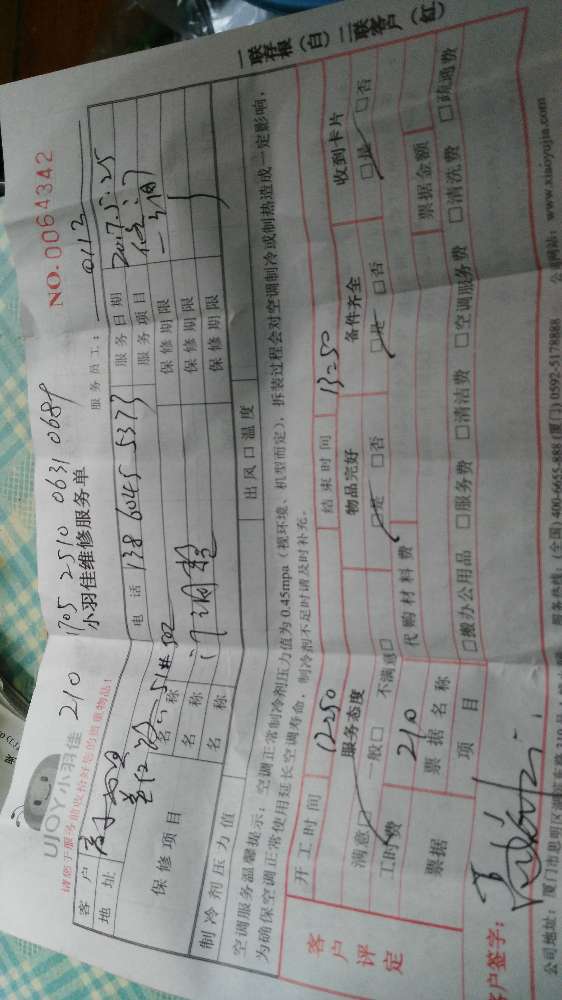 UJOY小羽佳
210
1705 2510 0631 0689
小羽佳维修服务单
NO.0064342
请您于服务前收拾好您的贵重物品!
服务员工: 0112
客户
电话 138 6045 5373
服务日期 2017.5.25
地址
服务项目
保修项目
名称
保修期限
名称
保修期限
名称
保修期限
制冷剂压力值
出风口温度
空调服务温馨提示:空调正常制冷剂压力值为0.45mpa(视环境、机型而定),拆装过程会对空调制冷或制热造成一定影响,
为确保空调正常使用延长空调寿命,制冷剂不足时请及时补充。
一联存根(白) 二联客户(红)
客户评定
开工时间 12:50
结束时间 13:50
服务态度
物品完好
备件齐全
收到卡片
满意□ 一般□ 不满意□
□是 □否
□是 □否
□是 □否
工时费 210
代购材料费
票据
票据名称
票据金额
项目
□搬办公用品 □服务费 □清洁费 □空调服务费 □清洗费 □疏通费
客户签字:
公司地址:厦门市思明区
服务热线:(全国)400-6655-888(厦门)0592-5178888
公司网站:www.xiaoyujia.com